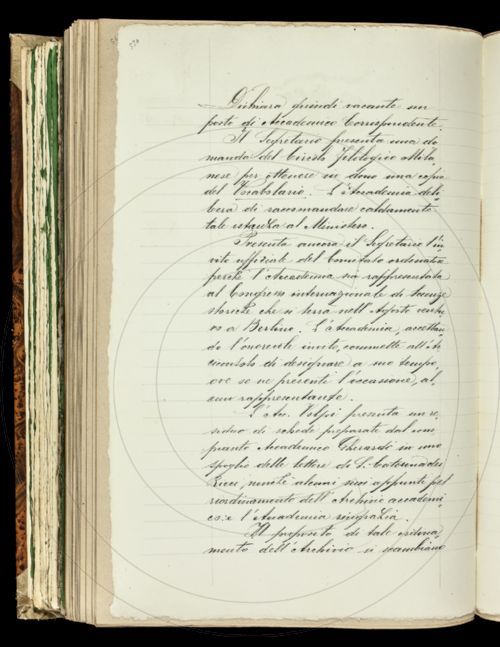 Dichiara quindi vacante un
posto di Accademico Corrispondente.
Il Segretario presenta una do
manda del Circolo filologico Mila
nese per ottenere in dono una copia
del Vocabolario. L'Accademia deli
bera di raccomandare caldamente
tale istanza al Ministero.
Presenta ancora il Segretario l'in
vito officiale del Comitato ordinatore
perché l'Accademia sia rappresentata
al Congresso internazionale di scienze
storiche che si terrà nell'Agosto ventu
ro a Berlino. L'Accademia, accettan
do l'onorevole invito, commette all'Ar
ciconsolo di designare a suo tempo,
ove se ne presenti l'occasione, al
cun rappresentante.
L'Acc. Volpi presenta un re
siduo di schede preparate dal com
pianto Accademico Gherardi in uno
spoglio delle lettere di S. Caterina dei
Ricci, nonché alcuni suoi appunti pel
riordinamento dell'Archivio accademi
co: e l'Accademia ringrazia.
A proposito di tale riordina
mento dell'Archivio si scambiano